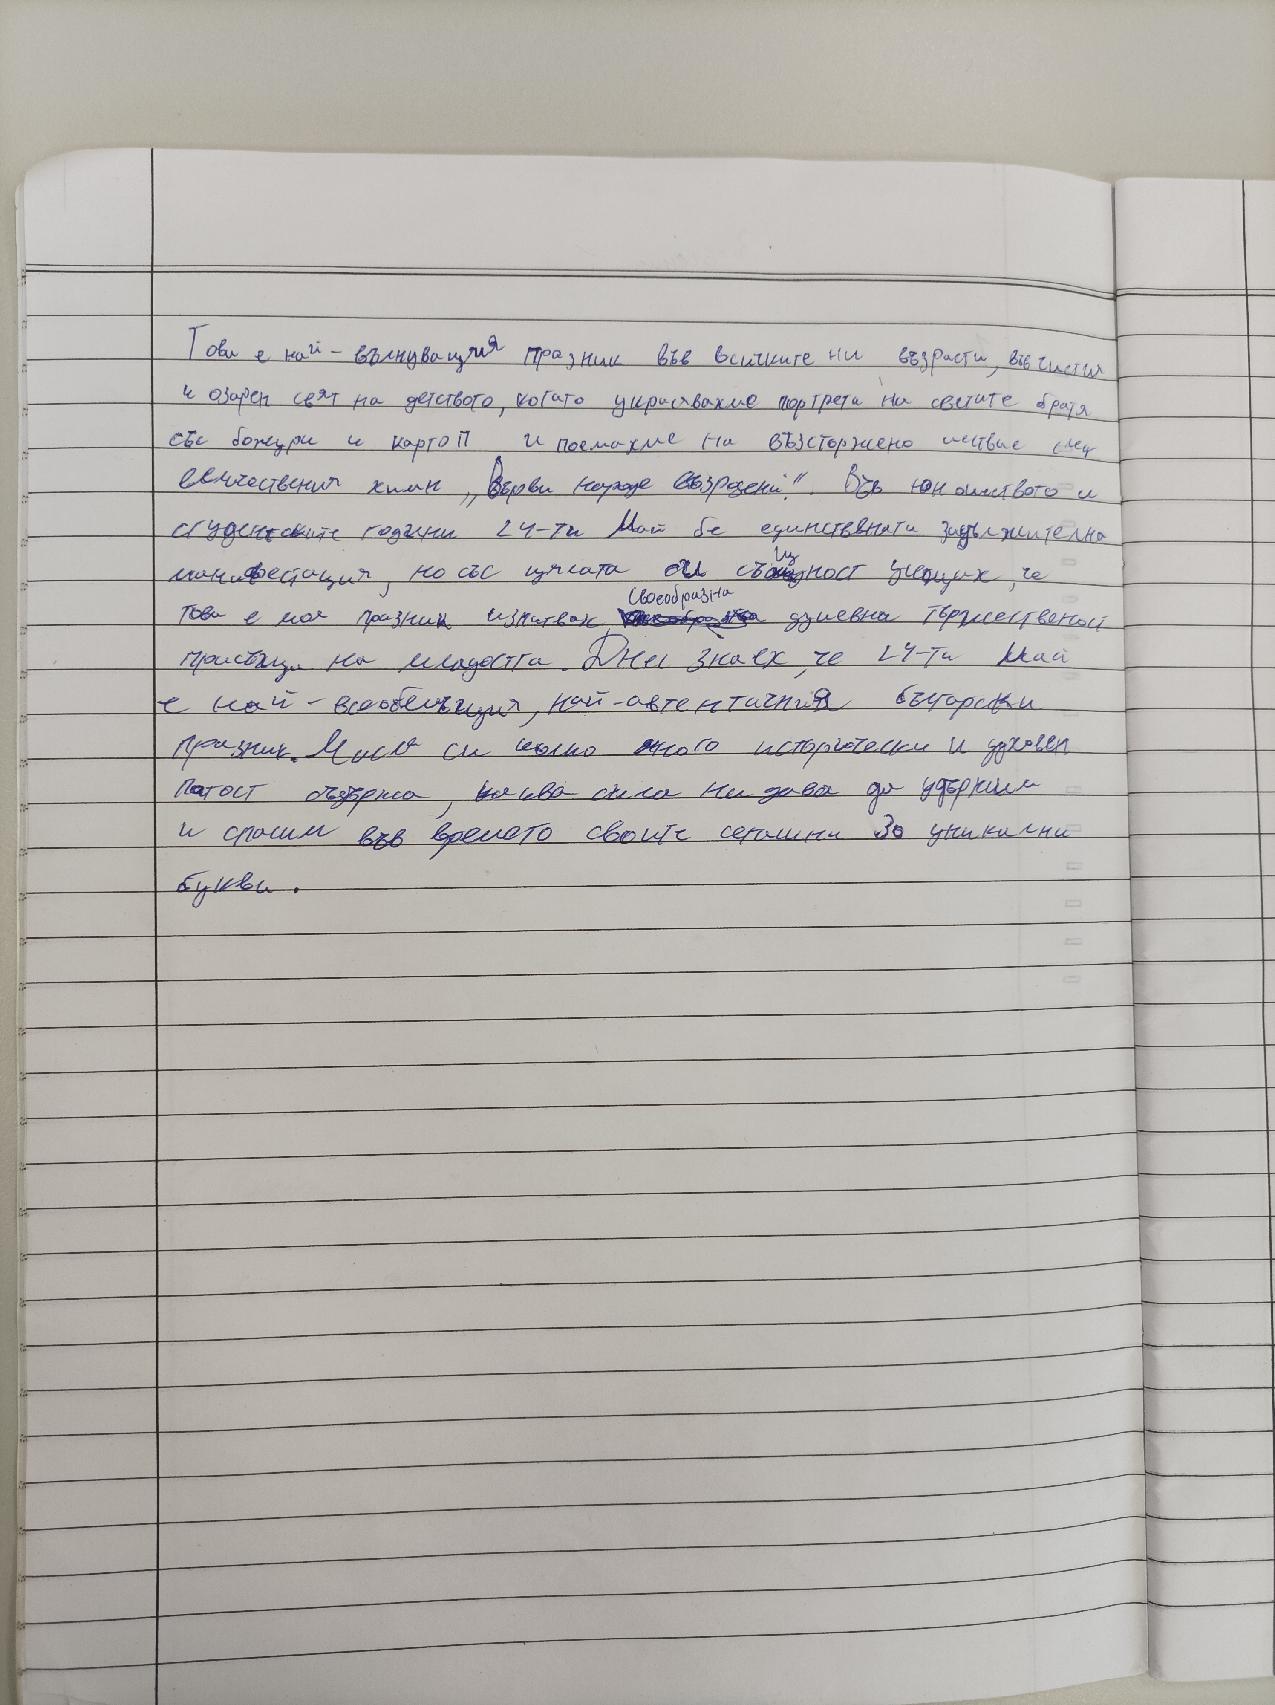 Това е най-вълнуващия празник във всичките ни възрасти, във чистия
и озарен свят на детството, когато украсявахме портрета на светите братя
със божури и картоп и поемахме на възсторжено шествие
величествения химн „Върви народе възродени!". Във юношеството и
студентските години 24-ти Май бе единствената задължителна
манифестация, но със цялата си същност усещах, че
това е моя празник изпитвах своеобразна душевна тържественост
присъща на младостта. Днес знаех, че 24-ти Май
е най-всеобемъщия, най-автентичния български
празник. Мисля си колко много исторически и духовен
патост съдържа, каква сила ни дава да удържим
и спасим във времето своите за уникални
букви.